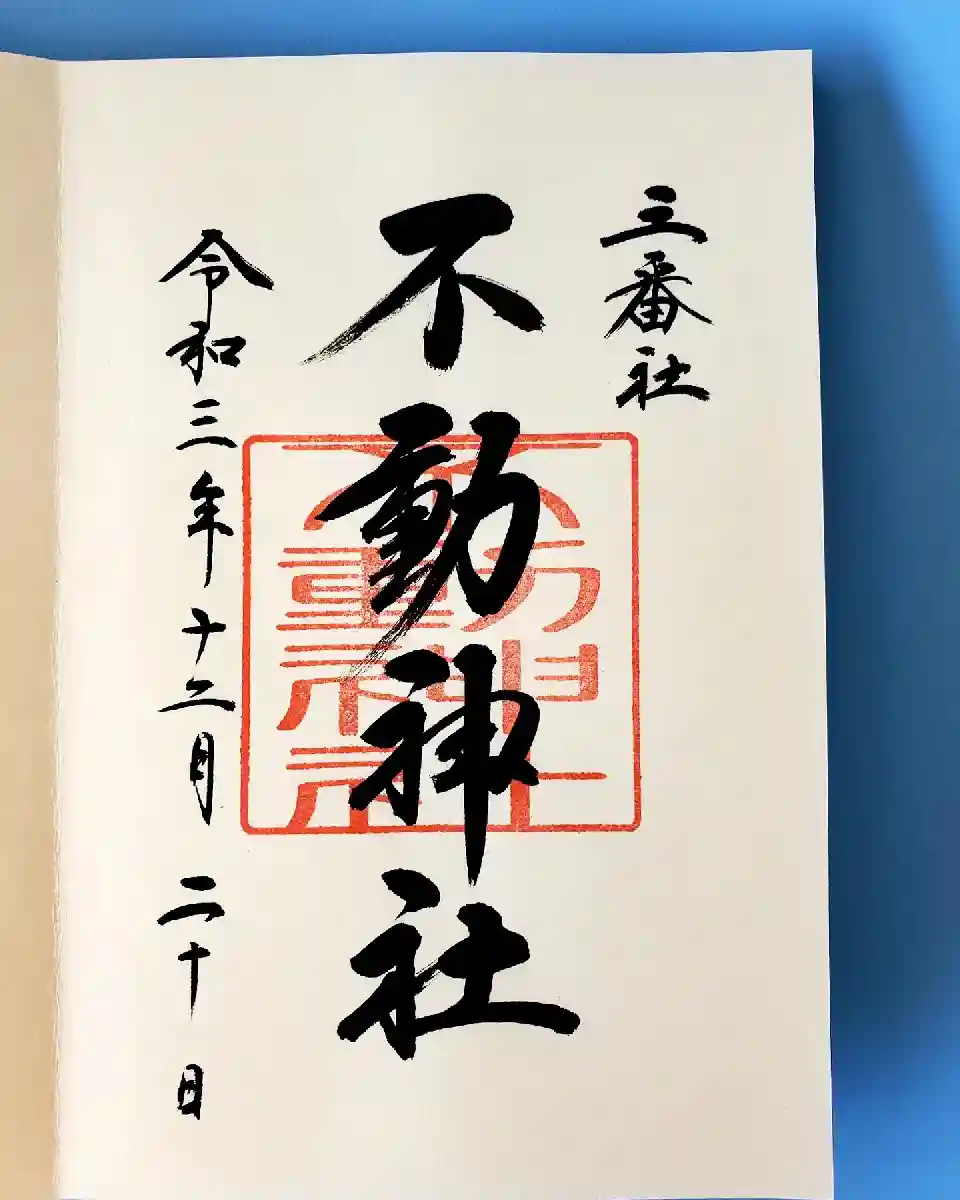 三番社
不動神社
令和三年十二月二十日
不動神社